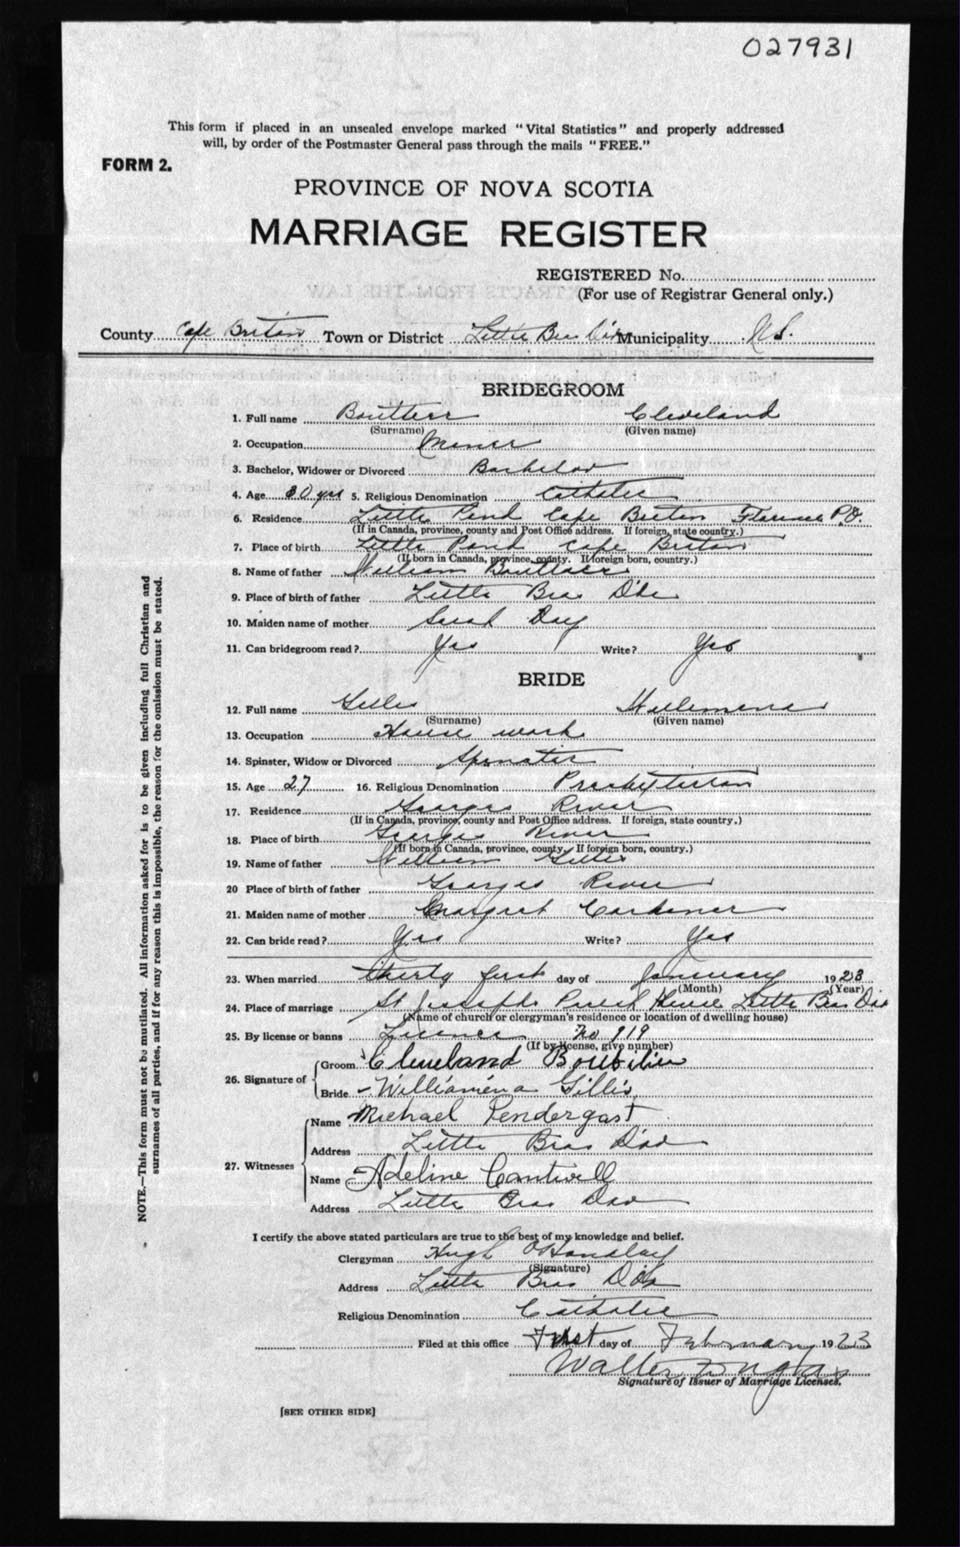 027931
This form if placed in an unsealed envelope marked "Vital Statistics" and properly addressed
will, by order of the Postmaster General pass through the mails "FREE."
FORM 2.
PROVINCE OF NOVA SCOTIA
MARRIAGE REGISTER
REGISTERED No.
(For use of Registrar General only.)
County Cape Breton Town or District Little Bras Municipality N S.
BRIDEGROOM
1. Full name Cleveland
(Surname) (Given name)
2. Occupation Miner
3. Bachelor, Widower or Divorced Bachelor
4. Age 30 yrs 5. Religious Denomination Catholic
6. Residence Little Pond Cape Breton Florence P.O.
(If in Canada, province, county and Post Office address. If foreign, state country.)
7. Place of birth Little Pond Cape Breton
(If born in Canada, province, county. If foreign born, country.)
8. Name of father William
9. Place of birth of father Little Bras D'Or
10. Maiden name of mother Sarah Day
11. Can bridegroom read? Yes Write? Yes
BRIDE
12. Full name Gillis
(Surname) (Given name)
13. Occupation House work
14. Spinster, Widow or Divorced Spinster
15. Age 27 16. Religious Denomination Presbyterian
17. Residence Georges River
(If in Canada, province, county and Post Office address. If foreign, state country.)
18. Place of birth Georges River
(If born in Canada, province, county. If foreign born, country.)
19. Name of father William Gillis
20 Place of birth of father Georges River
21. Maiden name of mother Margret
22. Can bride read? Yes Write? Yes
23. When married thirty first day of January 1923
(Month) (Year)
24. Place of marriage St Josephs House Little Bras Dor
(Name of church or clergyman's residence or location of dwelling house)
25. By license or banns License No 919
(If by license, give number)
26. Signature of Groom Cleveland
Bride Williamena Gillis
27. Witnesses Name Michael Pendergast
Address Little Bras D'or
Name Adeline Cantwell
Address Little Bras Dor
I certify the above stated particulars are true to the best of my knowledge and belief.
Clergyman Hugh
(Signature)
Address Little Bras D'Or
Religious Denomination Catholic
Filed at this office First day of February 1923
Walter
Signature of Issuer of Marriage Licenses.
[SEE OTHER SIDE]
NOTE.—This form must not be mutilated. All information asked for is to be given including full Christian and
surnames of all parties, and if for any reason this is impossible, the reason for the omission must be stated.